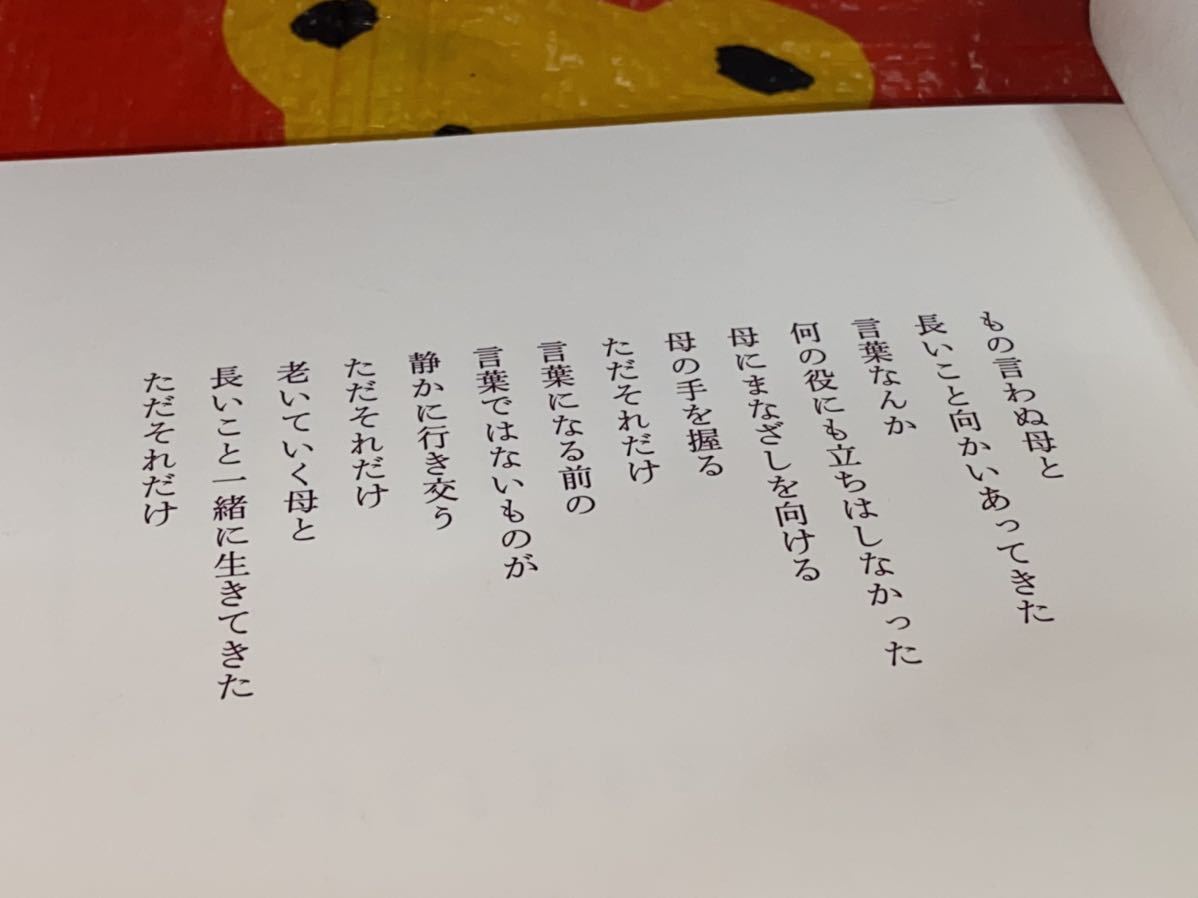 もの言わぬ母と
長いこと向かいあってきた
言葉なんか
何の役にも立ちはしなかった
母にまなざしを向ける
母の手を握る
ただそれだけ
言葉になる前の
言葉ではないものが
静かに行き交う
ただそれだけ
老いていく母と
長いこと一緒に生きてきた
ただそれだけ